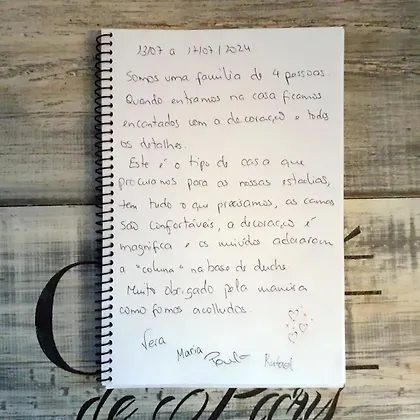 13/07 a 17/07/2024
Somos uma família de 4 pessoas.
Quando entramos na casa ficamos
encantados com a decoração e todos
os detalhes.
Este é o tipo de casa que
procuramos para as nossas estadias,
tem tudo o que precisamos, as camas
são confortáveis, a decoração é
magnífica e os miúdos adoraram
a "coluna" na base de duche.
Muito obrigado pela maneira
como fomos acolhidos.
Vera
Maria
Paulo
Rafael
de Paris